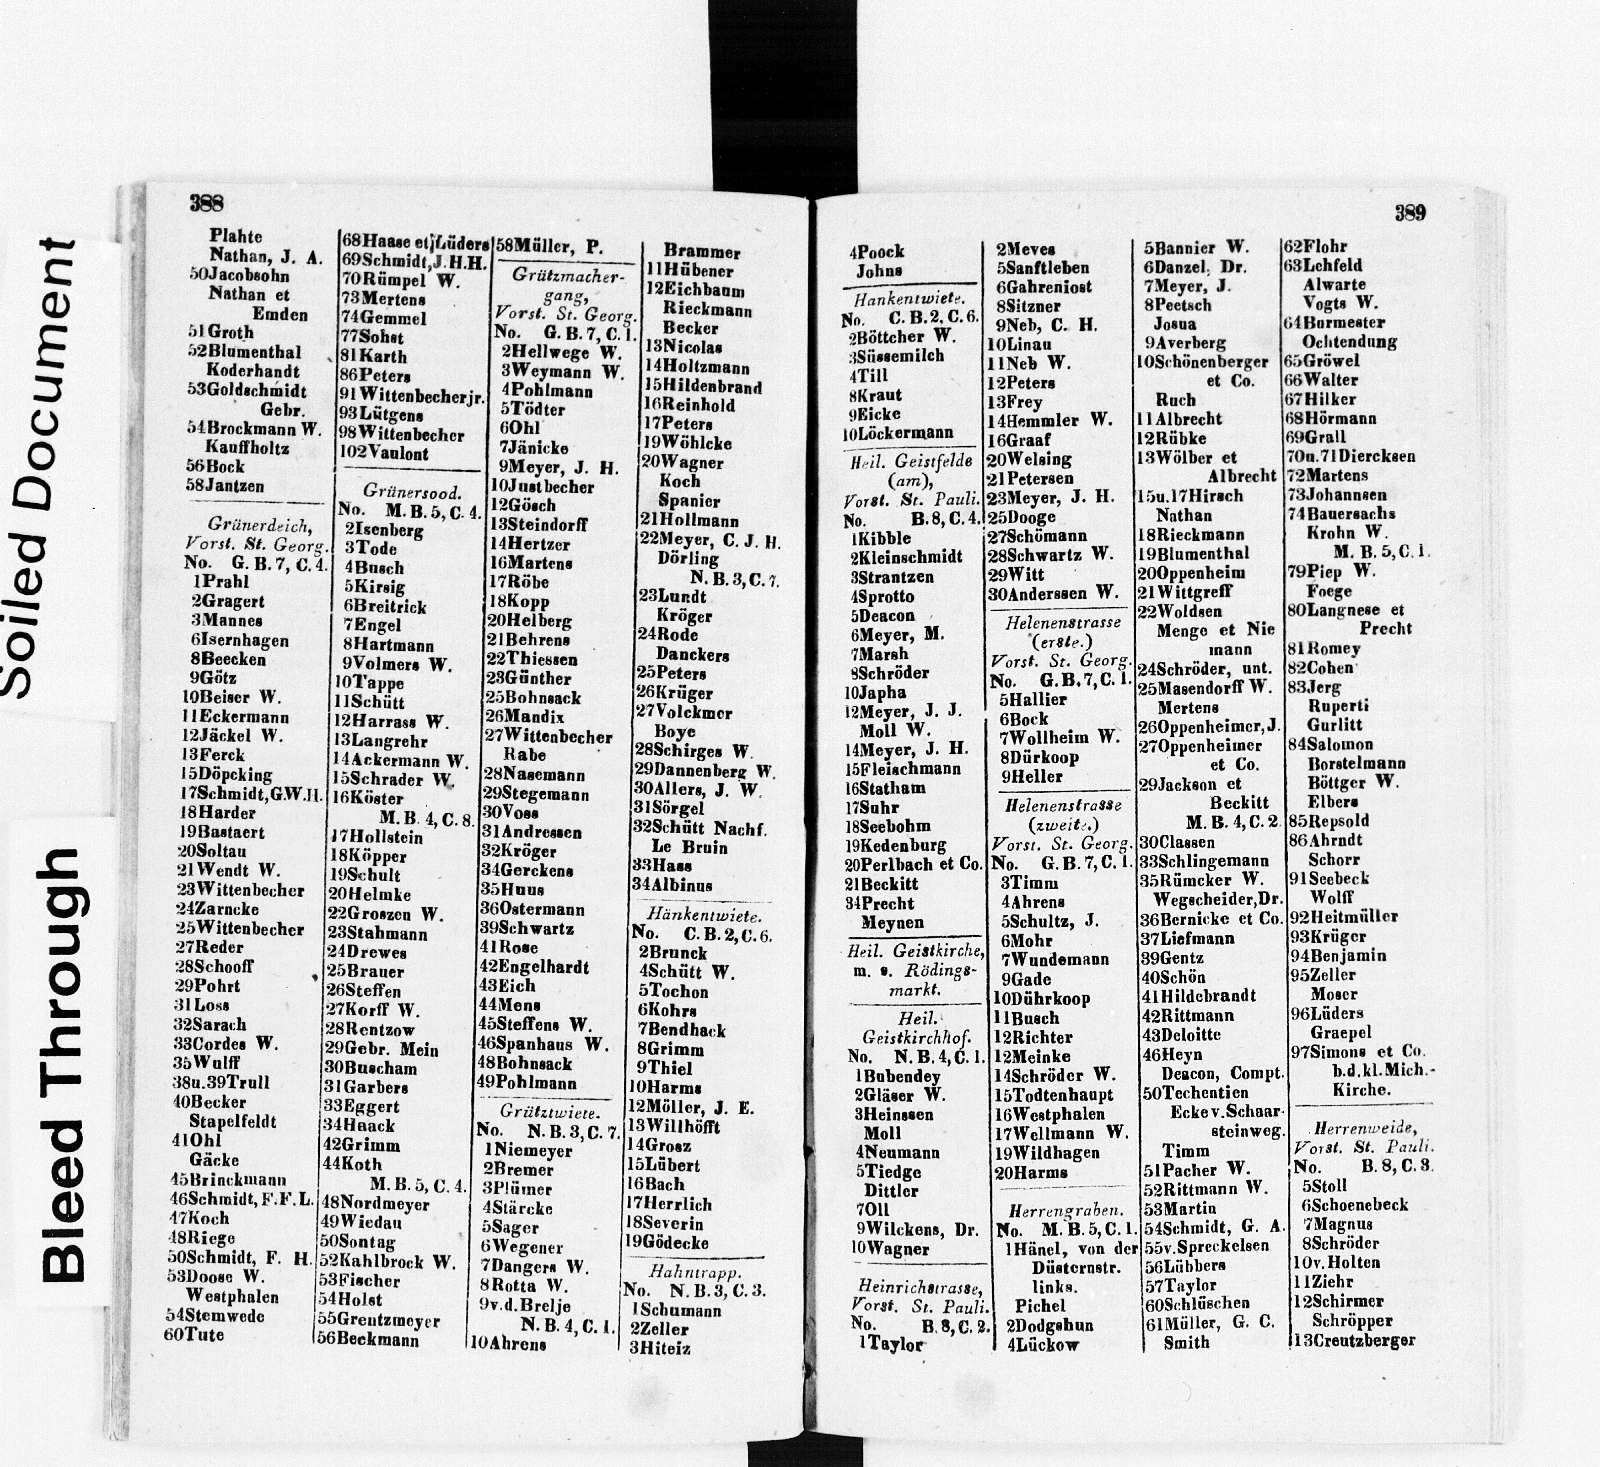 Soiled Document
Bleed Through
388
Plahte
Nathan, J. A.
50Jacobsohn
Nathan et
Emden
51Groth
52Blumenthal
Koderhandt
53Goldschmidt
Gebr.
54Brockmann W.
Kauffholtz
56Bock
58Jantzen
Grünerdeich,
Vorst. St. Georg.
No. G. B. 7, C. 4.
1Prahl
2Gragert
3Mannes
6Isernhagen
8Beecken
9Götz
10Beiser W.
11Eckermann
12Jäckel W.
13Ferck
15Döpcking
17Schmidt, G.W.H.
18Harder
19Bastaert
20Soltau
21Wendt W.
23Wittenbecher
24Zarncke
25Wittenbecher
27Reder
28Schooff
29Pohrt
31Loss
32Sarach
33Cordes W.
35Wulff
38u.39Trull
40Becker
Stapelfeldt
41Ohl
Gäcke
45Brinckmann
46Schmidt, F.F.L.
47Koch
48Riege
50Schmidt, F. H.
53Doose W.
Westphalen
54Stemwede
60Tute
68Haase et Lüders
69Schmidt, J.H.H.
70Rümpel W.
73Mertens
74Gemmel
77Sohst
81Karth
86Peters
91Wittenbecher jr.
93Lütgens
98Wittenbecher
102Vaulont
Grünersood.
No. M. B. 5, C. 4.
2Isenberg
3Tode
4Busch
5Kirsig
6Breitrick
7Engel
8Hartmann
9Volmers W.
10Tappe
11Schütt
12Harrass W.
13Langrehr
14Ackermann W.
15Schrader W.
16Köster
M. B. 4, C. 8.
17Hollstein
18Köpper
19Schult
20Helmke
22Groszen W.
23Stahmann
24Drewes
25Brauer
26Steffen
27Korff W.
28Rentzow
29Gebr. Mein
30Buscham
31Garbers
33Eggert
34Haack
42Grimm
44Koth
M. B. 5, C. 4.
48Nordmeyer
49Wiedau
50Sontag
52Kahlbrock W.
53Fischer
54Holst
55Greutzmeyer
56Beckmann
58Müller, P.
Grützmacher-
gang,
Vorst. St. Georg.
No. G. B. 7, C. 1.
2Hellwege W.
3Weymann W.
4Pohlmann
5Tödter
6Ohl
7Jänicke
9Meyer, J. H.
10Justbecher
12Gösch
13Steindorff
14Hertzer
16Martens
17Röbe
18Kopp
20Helberg
21Behrens
22Thiessen
23Günther
25Bohnsack
26Mandix
27Wittenbecher
Rabe
28Nasemann
29Stegemann
30Voss
31Andressen
32Kröger
34Gerckens
35Huus
36Ostermann
39Schwartz
41Rose
42Engelhardt
43Eich
44Mens
45Steffens W.
46Spanhaus W.
48Bohnsack
49Pohlmann
Grütztwiete.
No. N. B. 3, C. 7.
1Niemeyer
2Bremer
3Plümer
4Stärcke
5Sager
6Wegener
7Dangers W.
8Rotta W.
9v.d.Brelje
N. B. 4, C. 1.
10Ahrens
Brammer
11Hübener
12Eichbaum
Rieckmann
Becker
13Nicolas
14Holtzmann
15Hildenbrand
16Reinhold
17Peters
19Wöhlcke
20Wagner
Koch
Spanier
21Hollmann
22Meyer, C. J. H.
Dörling
N. B. 3, C. 7.
23Lundt
Kröger
24Rode
Danckers
25Peters
26Krüger
27Volckmer
Boye
28Schirges W.
29Dannenberg W.
30Allers, J. W.
31Sörgel
32Schütt Nachf.
Le Bruin
33Hass
34Albinus
Hänkentwiete.
No. C. B. 2, C. 6.
2Brunck
4Schütt W.
5Tochon
6Kohrs
7Bendhack
8Grimm
9Thiel
10Harms
12Möller, J. E.
13Willhöfft
14Grosz
15Lübert
16Bach
17Herrlich
18Severin
19Gödecke
Hahntrapp.
No. N. B. 3, C. 3.
1Schumann
2Zeller
3Hiteiz
389
4Poock
Johns
Hankentwiete.
No. C. B. 2, C. 6.
2Böttcher W.
3Süssemilch
4Till
8Kraut
9Eicke
10Löckermann
Heil. Geistfelde
(am),
Vorst. St. Pauli.
No. B. 8, C. 4.
1Kibble
2Kleinschmidt
3Strantzen
4Sprotto
5Deacon
6Meyer, M.
7Marsh
8Schröder
10Japha
12Meyer, J. J.
Moll W.
14Meyer, J. H.
15Fleischmann
16Statham
17Suhr
18Seebohm
19Kedenburg
20Perlbach et Co.
21Beckitt
34Precht
Meynen
Heil. Geistkirche,
m. s. Rödings-
markt.
Heil.
Geistkirchhof.
No. N. B. 4, C. 1.
1Bubendey
2Gläser W.
3Heinssen
Moll
4Neumann
5Tiedge
Dittler
7Oll
9Wilckens, Dr.
10Wagner
Heinrichstrasse,
Vorst. St. Pauli.
No. B. 8, C. 2.
1Taylor
2Meves
5Sanftleben
6Gahreniost
8Sitzner
9Neb, C. H.
10Linau
11Neb W.
12Peters
13Frey
14Hemmler W.
16Graaf
20Welsing
21Petersen
23Meyer, J. H.
25Dooge
27Schömann
28Schwartz W.
29Witt
30Anderssen W.
Helenenstrasse
(erste.)
Vorst. St. Georg.
No. G. B. 7, C. 1.
5Hallier
6Bock
7Wollheim W.
8Dürkoop
9Heller
Helenenstrasse
(zweite.)
Vorst. St. Georg.
No. G. B. 7, C. 1.
3Timm
4Ahrens
5Schultz, J.
6Mohr
7Wundemann
9Gade
10Dührkoop
11Busch
12Richter
12Meinke
14Schröder W.
15Todtenhaupt
16Westphalen
17Wellmann W.
19Wildhagen
20Harms
Herrengraben.
No. M. B. 5, C. 1.
1Hänel, von der
Düsternstr.
links.
Pichel
2Dodgshun
4Lückow
5Bannier W.
6Danzel, Dr.
7Meyer, J.
8Peetsch
Josua
9Averberg
10Schönenberger
et Co.
Ruch
11Albrecht
12Rübke
13Wölber et
Albrecht
15u.17Hirsch
Nathan
18Rieckmann
19Blumenthal
20Oppenheim
21Wittgreff
22Woldsen
Menge et Nie
mann
24Schröder, unt.
25Masendorff W.
Mertens
26Oppenheimer, J.
27Oppenheimer
et Co.
29Jackson et
Beckitt
M. B. 4, C. 2.
30Classen
33Schlingemann
35Rümcker W.
Wegscheider, Dr.
36Bernicke et Co.
37Liefmann
39Gentz
40Schön
41Hildebrandt
42Rittmann
43Deloitte
46Heyn
Deacon, Compt.
50Techentien
Ecke v. Schaar-
steinweg.
Timm
51Pacher W.
52Rittmann W.
53Martin
54Schmidt, G. A.
55v.Spreckelsen
56Lübbers
57Taylor
60Schlüschen
61Müller, G. C.
Smith
62Flohr
63Lehfeld
Alwarte
Vogts W.
64Burmester
Ochtendung
65Gröwel
66Walter
67Hilker
68Hörmann
69Grall
70u.71Diercksen
72Martens
73Johannsen
74Bauersachs
Krohn W.
M. B. 5, C. 1.
79Piep W.
Foege
80Langnese et
Precht
81Romey
82Cohen
83Jerg
Ruperti
Gurlitt
84Salomon
Borstelmann
Böttger W.
Elbers
85Repsold
86Ahrndt
Schorr
91Seebeck
Wolff
92Heitmüller
93Krüger
94Benjamin
95Zeller
Moser
96Lüders
Graepel
97Simons et Co.
b.d.kl.Mich.-
Kirche.
Herrenweide,
Vorst. St. Pauli.
No. B. 8, C. 3.
5Stoll
6Schoenebeck
7Magnus
8Schröder
10v.Holten
11Ziehr
12Schirmer
Schröpper
13Creutzberger